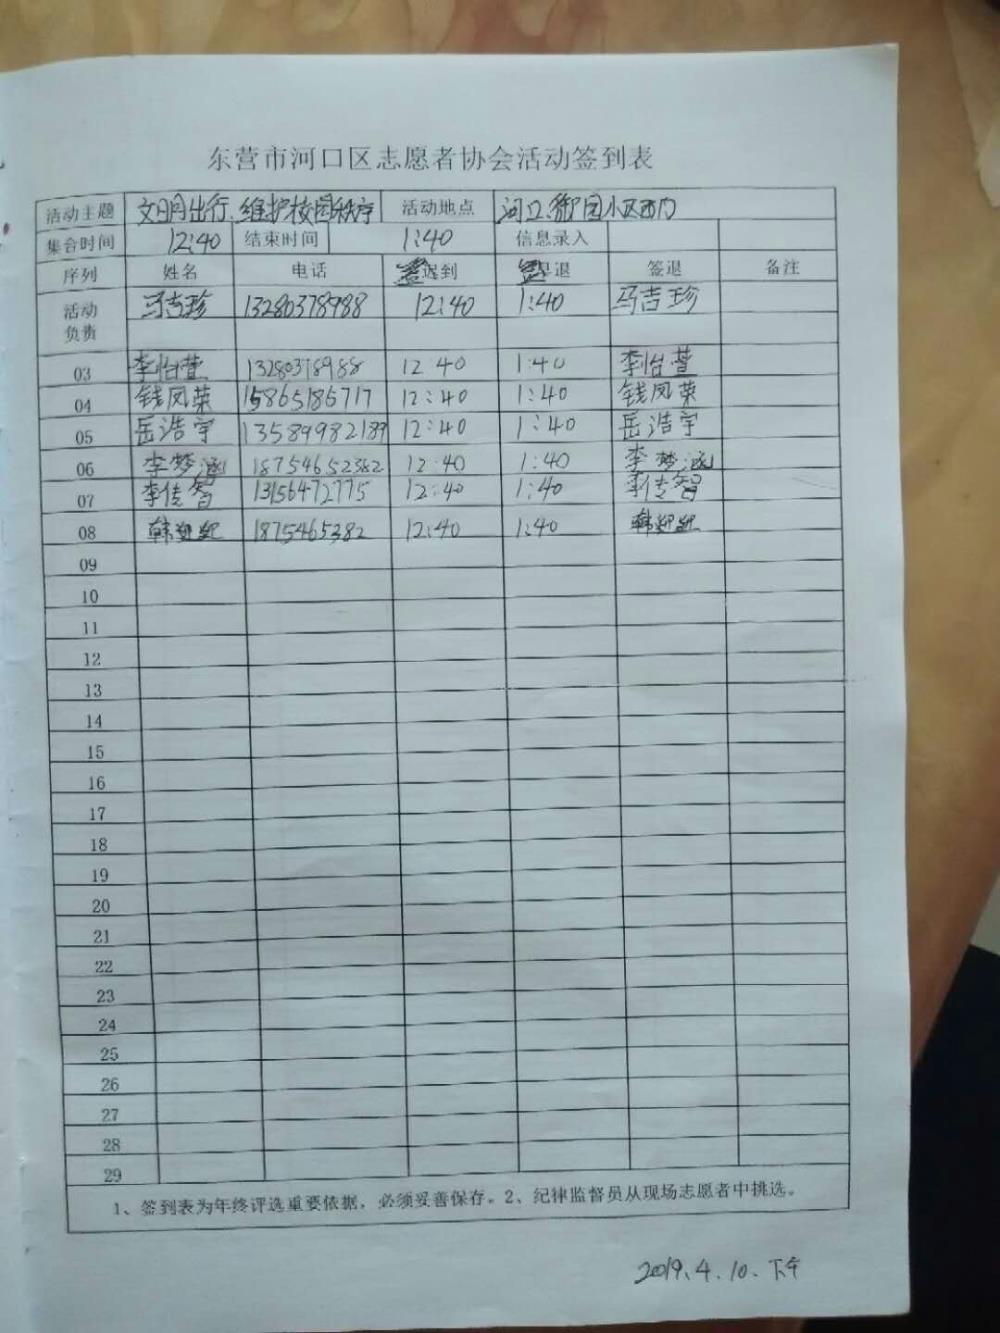 东营市河口区志愿者协会活动签到表
活动主题 文明出行.维护校园秩序 活动地点 河口御园小区西门
集合时间 12:40 结束时间 1:40 信息录入
序列 姓名 电话 迟到 早退 签退 备注
活动负责 马吉珍 13280378988 12:40 1:40 马吉珍
03 李怡萱 13280378988 12:40 1:40 李怡萱
04 钱凤荣 15865186717 12:40 1:40 钱凤荣
05 岳浩宇 13589982189 12:40 1:40 岳浩宇
06 李梦涵 18754652382 12:40 1:40 李梦涵
07 李传智 13156472775 12:40 1:40 李传智
08 韩 1875465382 12:40 1:40 韩
09
10
11
12
13
14
15
16
17
18
19
20
21
22
23
24
25
26
27
28
29
1、签到表为年终评选重要依据，必须妥善保存。2、纪律监督员从现场志愿者中挑选。
2019.4.10.下午